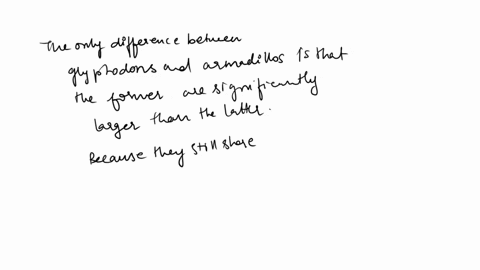 The only difference between
glyptodons and armadillos is that
the former are significantly
larger than the latter.
Because they still share